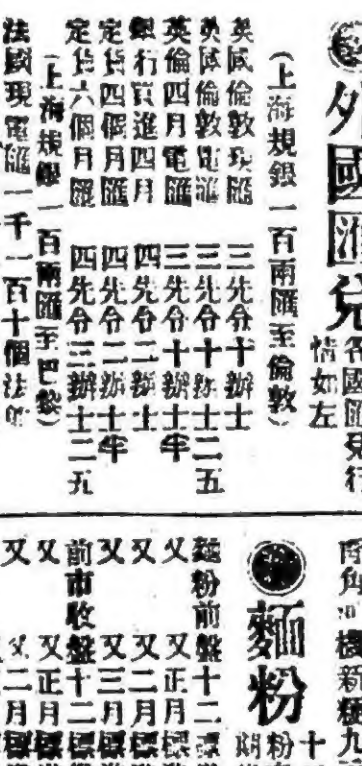 外國匯兌
各國匯兌行
情如左
(上海規銀一百兩匯至倫敦)
英國倫敦現匯 三先令十辦士
英國倫敦電匯 三先令十辦士二五
英倫四月電匯 三先令十辦士半
銀行買進四月 四先令二辦士
定貨四個月匯 四先令二辦士半
定貨六個月匯 四先令三辦士二五
(上海規銀一百兩匯至巴黎)
法國現電匯一千一百十個法
麵粉
麵粉前盤十二標
又 正月標
又 二月標
又 三月標
前市收盤十二標
又 正月標
又 二月標